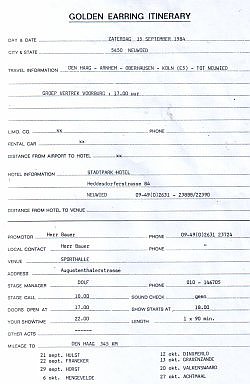 GOLDEN EARRING ITINERARY
DAY & DATE ZATERDAG 15 SEPTEMBER 1984
CITY & STATE 5450 NEUWIED
TRAVEL INFORMATION DEN HAAG - ARNHEM - OBERHAUSEN - KOLN (E5) - TOT NEUWIED
GROEP VERTREK VOORBURG : 17.00 uur
LIMO. CO xx PHONE
RENTAL CAR xx
DISTANCE FROM AIRPORT TO HOTEL xx
HOTEL INFORMATION STADTPARK HOTEL
Heddesdorferstrasse 84
NEUWIED 09-49(0)2631 - 23888/22390
DISTANCE FROM HOTEL TO VENUE
PROMOTOR Herr Bauer PHONE 09-49(0)2631 23724
LOCAL CONTACT Herr Bauer PHONE "
VENUE SPORTHALLE
ADDRESS Augustenthalerstrasse
STAGE MANAGER DOLF PHONE 010 - 146705
STAGE CALL 10.00 SOUND CHECK geen
DOORS OPEN AT 17.00 SHOW STARTS AT 18.00
YOUR SHOWTIME 22.00 LENGTH 1 x 90 min.
OTHER ACTS ------
MILEAGE TO DEN HAAG 345 KM
21 sept. HULST 12 okt. DINXPERLO
22 sept. FRANEKER 13 okt. GRAVENZANDE
29 sept. HORST 20 okt. VALKENSWAARD
6 okt. HENGEVELDE 27 okt. ACHTMAAL